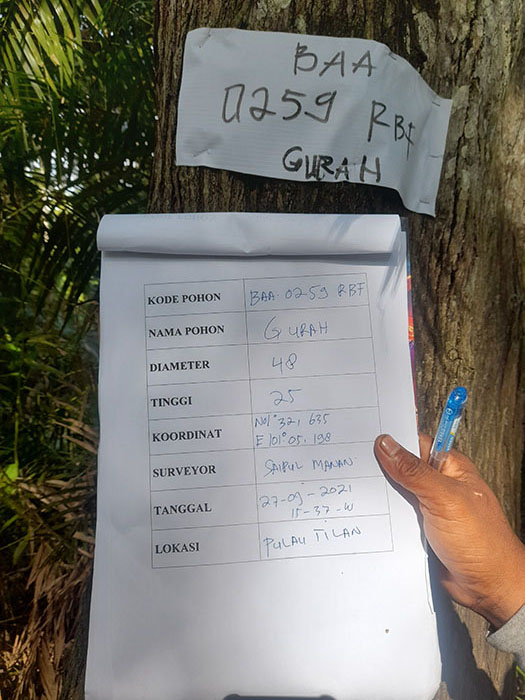 BAA
0259 RBF
GURAH
KODE POHON BAA 0259 RBF
NAMA POHON GURAH
DIAMETER 48
TINGGI 25
KOORDINAT N01° 32, 635
E 101° 05, 198
SURVEYOR SAIPUL MANAN
TANGGAL 27-09-2021
15-37-W
LOKASI PULAU TILAN